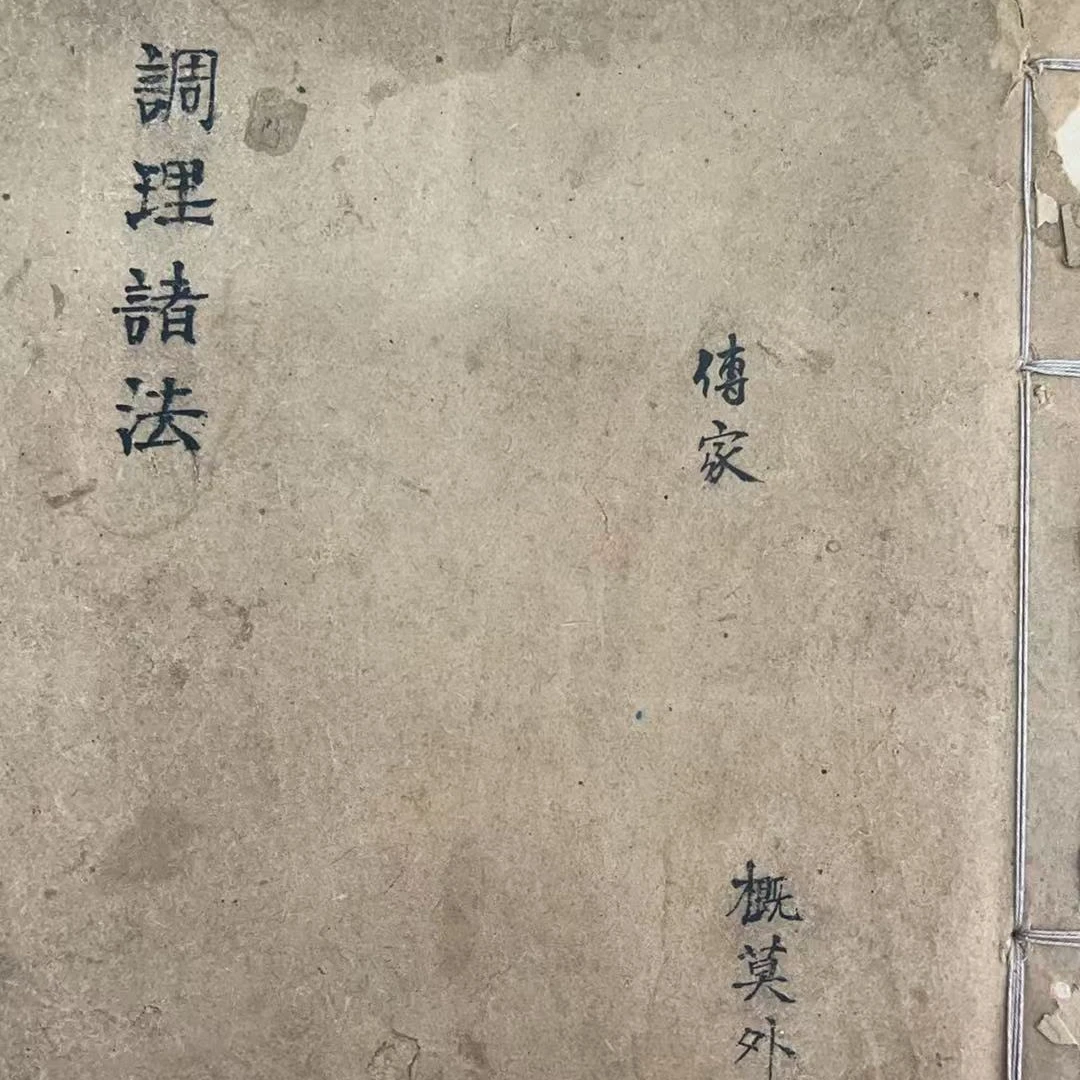 傳家
概莫外
調理諸法